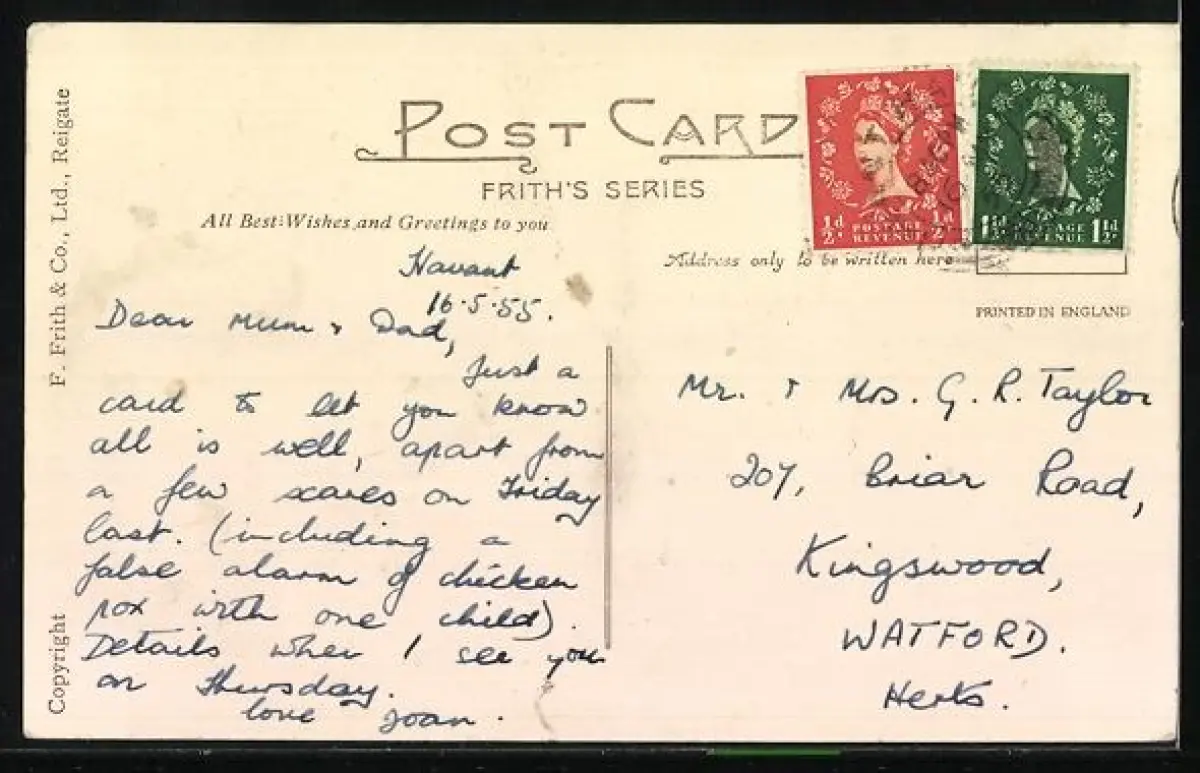 POST CARD
FRITH'S SERIES
All Best Wishes and Greetings to you
Address only to be written here
PRINTED IN ENGLAND
F. Frith & Co., Ltd., Reigate
Copyright
½d ½d
POSTAGE
REVENUE
1½d 1½d
POSTAGE
REVENUE
Havant
16.5.55.
Dear Mum & Dad,
Just a
card to let you know
all is well, apart from
a few scares on Friday
last. (including a
false alarm of chicken
pox with one child).
Details when I see you
on Thursday.
love Joan.
Mr. & Mrs. G. R. Taylor
207, Briar Road,
Kingswood,
WATFORD.
Herts.